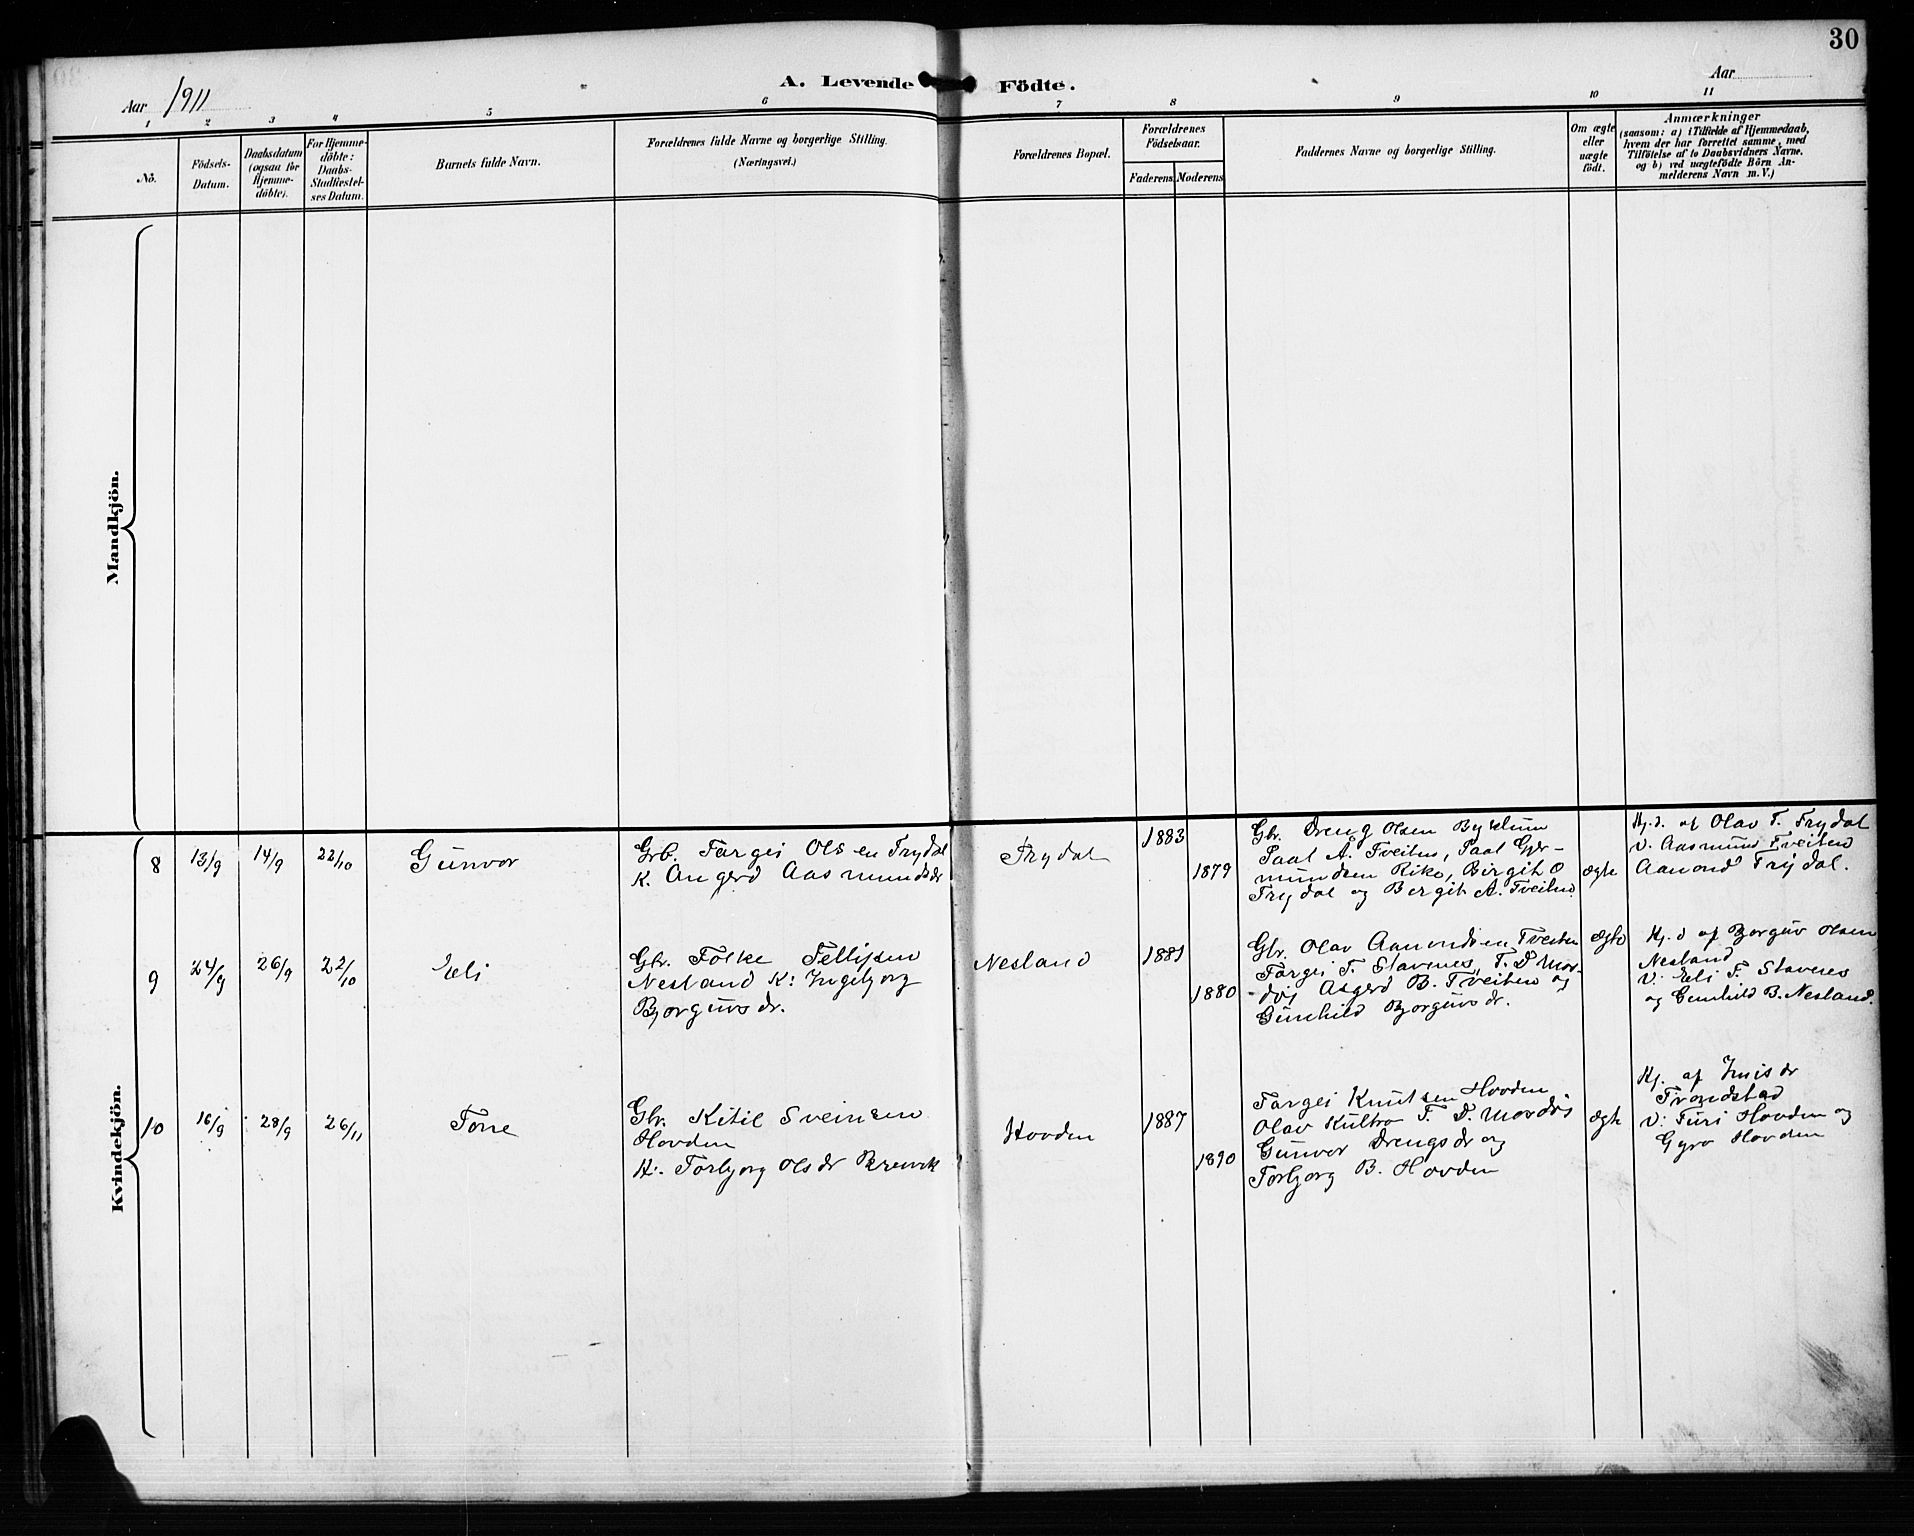 30
A. Levende Födte.
Aar 1911
Aar
1 2 3 4 5 6 7 8 9 10 11
No.
Födsels-
Datum.
Daabsdatum
(ogsaa for
Hjemme-
döbte).
For Hjemme-
döbte:
Daabs-
Stadfæstel-
ses Datum.
Barnets fulde Navn.
Forældrenes fulde Navne og borgerlige Stilling.
(Næringsvei.)
Forældrenes Bopæl.
Forældrenes
Födselsaar.
Faderens Moderens
Faddernes Navne og borgerlige Stilling.
Om ægte
eller
uægte
født.
Anmærkninger
(saasom: a) i Tilfælde af Hjemmedaab,
hvem der har forrettet samme, med
Tilföielse af to Daabsvidners Navne.
og b) ved uægtefödte Börn An-
melderens Navn m. V.)
Mandkjön.
Kvindekjön.
8
13/9
14/9
22/10
Gunvor
Grb. Targei Olsen Trydal
K. Angerd Aasmundsdr
Trydal
1883
1879
Gbr. Dreng Olsen Byklum
Paal A. Tveiten, Paal Gjer-
mundsen Rike, Birgit O
Trydal og Bergit A. Tveiten
ægte
Hj.d. af Olav T. Trydal
V. Aasmund Tveiten
Aamond Trydal.
9
24/9
26/9
22/10
Eli
Gbr. Folke Tellefsen
Nesland K: Ingebjorg
Bjorguvs dr.
Nesland
1881
1880
Gbr. Olav Aamondsen Tveiten
Targei T. Stavenes, T. D. Mor-
dvj Asgerd B. Tveiten og
Gunhild Bjorguvs dr.
ægte
Hj. d af Bjorguv Olsen
Nesland
V: Eli T. Stavenes
og Gunhild B. Nesland.
10
16/9
28/9
26/11
Tone
Gbr. Kitil Sveinsen
Hovden
K: Torbjorg Olsdr Breivik
Hovden
1887
1890
Targei Knutsen Hovden
Olav Kultran T. D. Mordvj
Gunvor Drengsdr og
Torbjorg B. Hovden
ægte
Hj. af
Trondstad
V: Turi Hovden og
Gyro Hovden